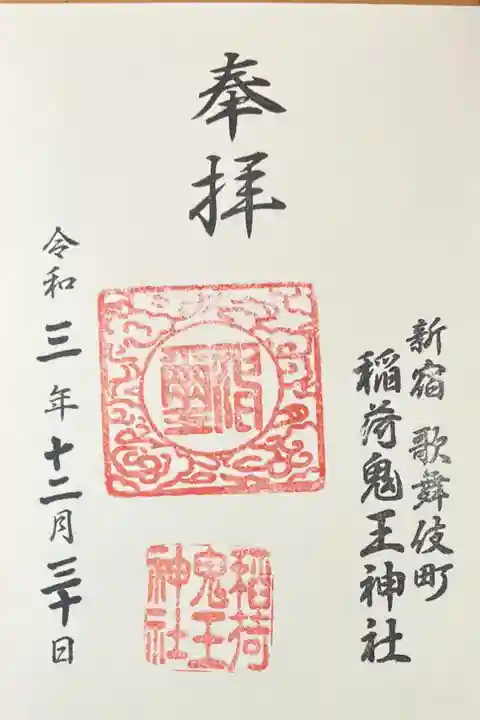 奉拝
新宿 歌舞伎町
稲荷鬼王神社
稲荷
鬼王
神社
令和三年十二月三十日